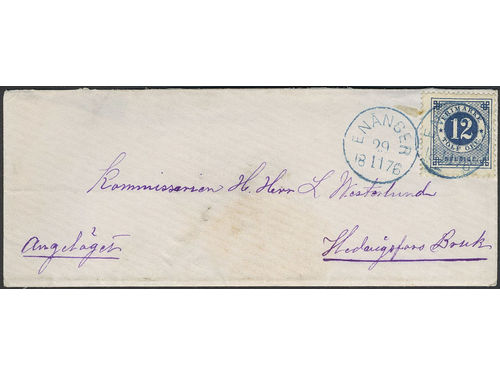 FRIMÄRKE
12
TOLV ÖRE
SVERIGE
ENÅNGER
29
18 11 76
Kommissarien H. Herr L Westerlund
Angeläget
Hedvigsfors Bruk